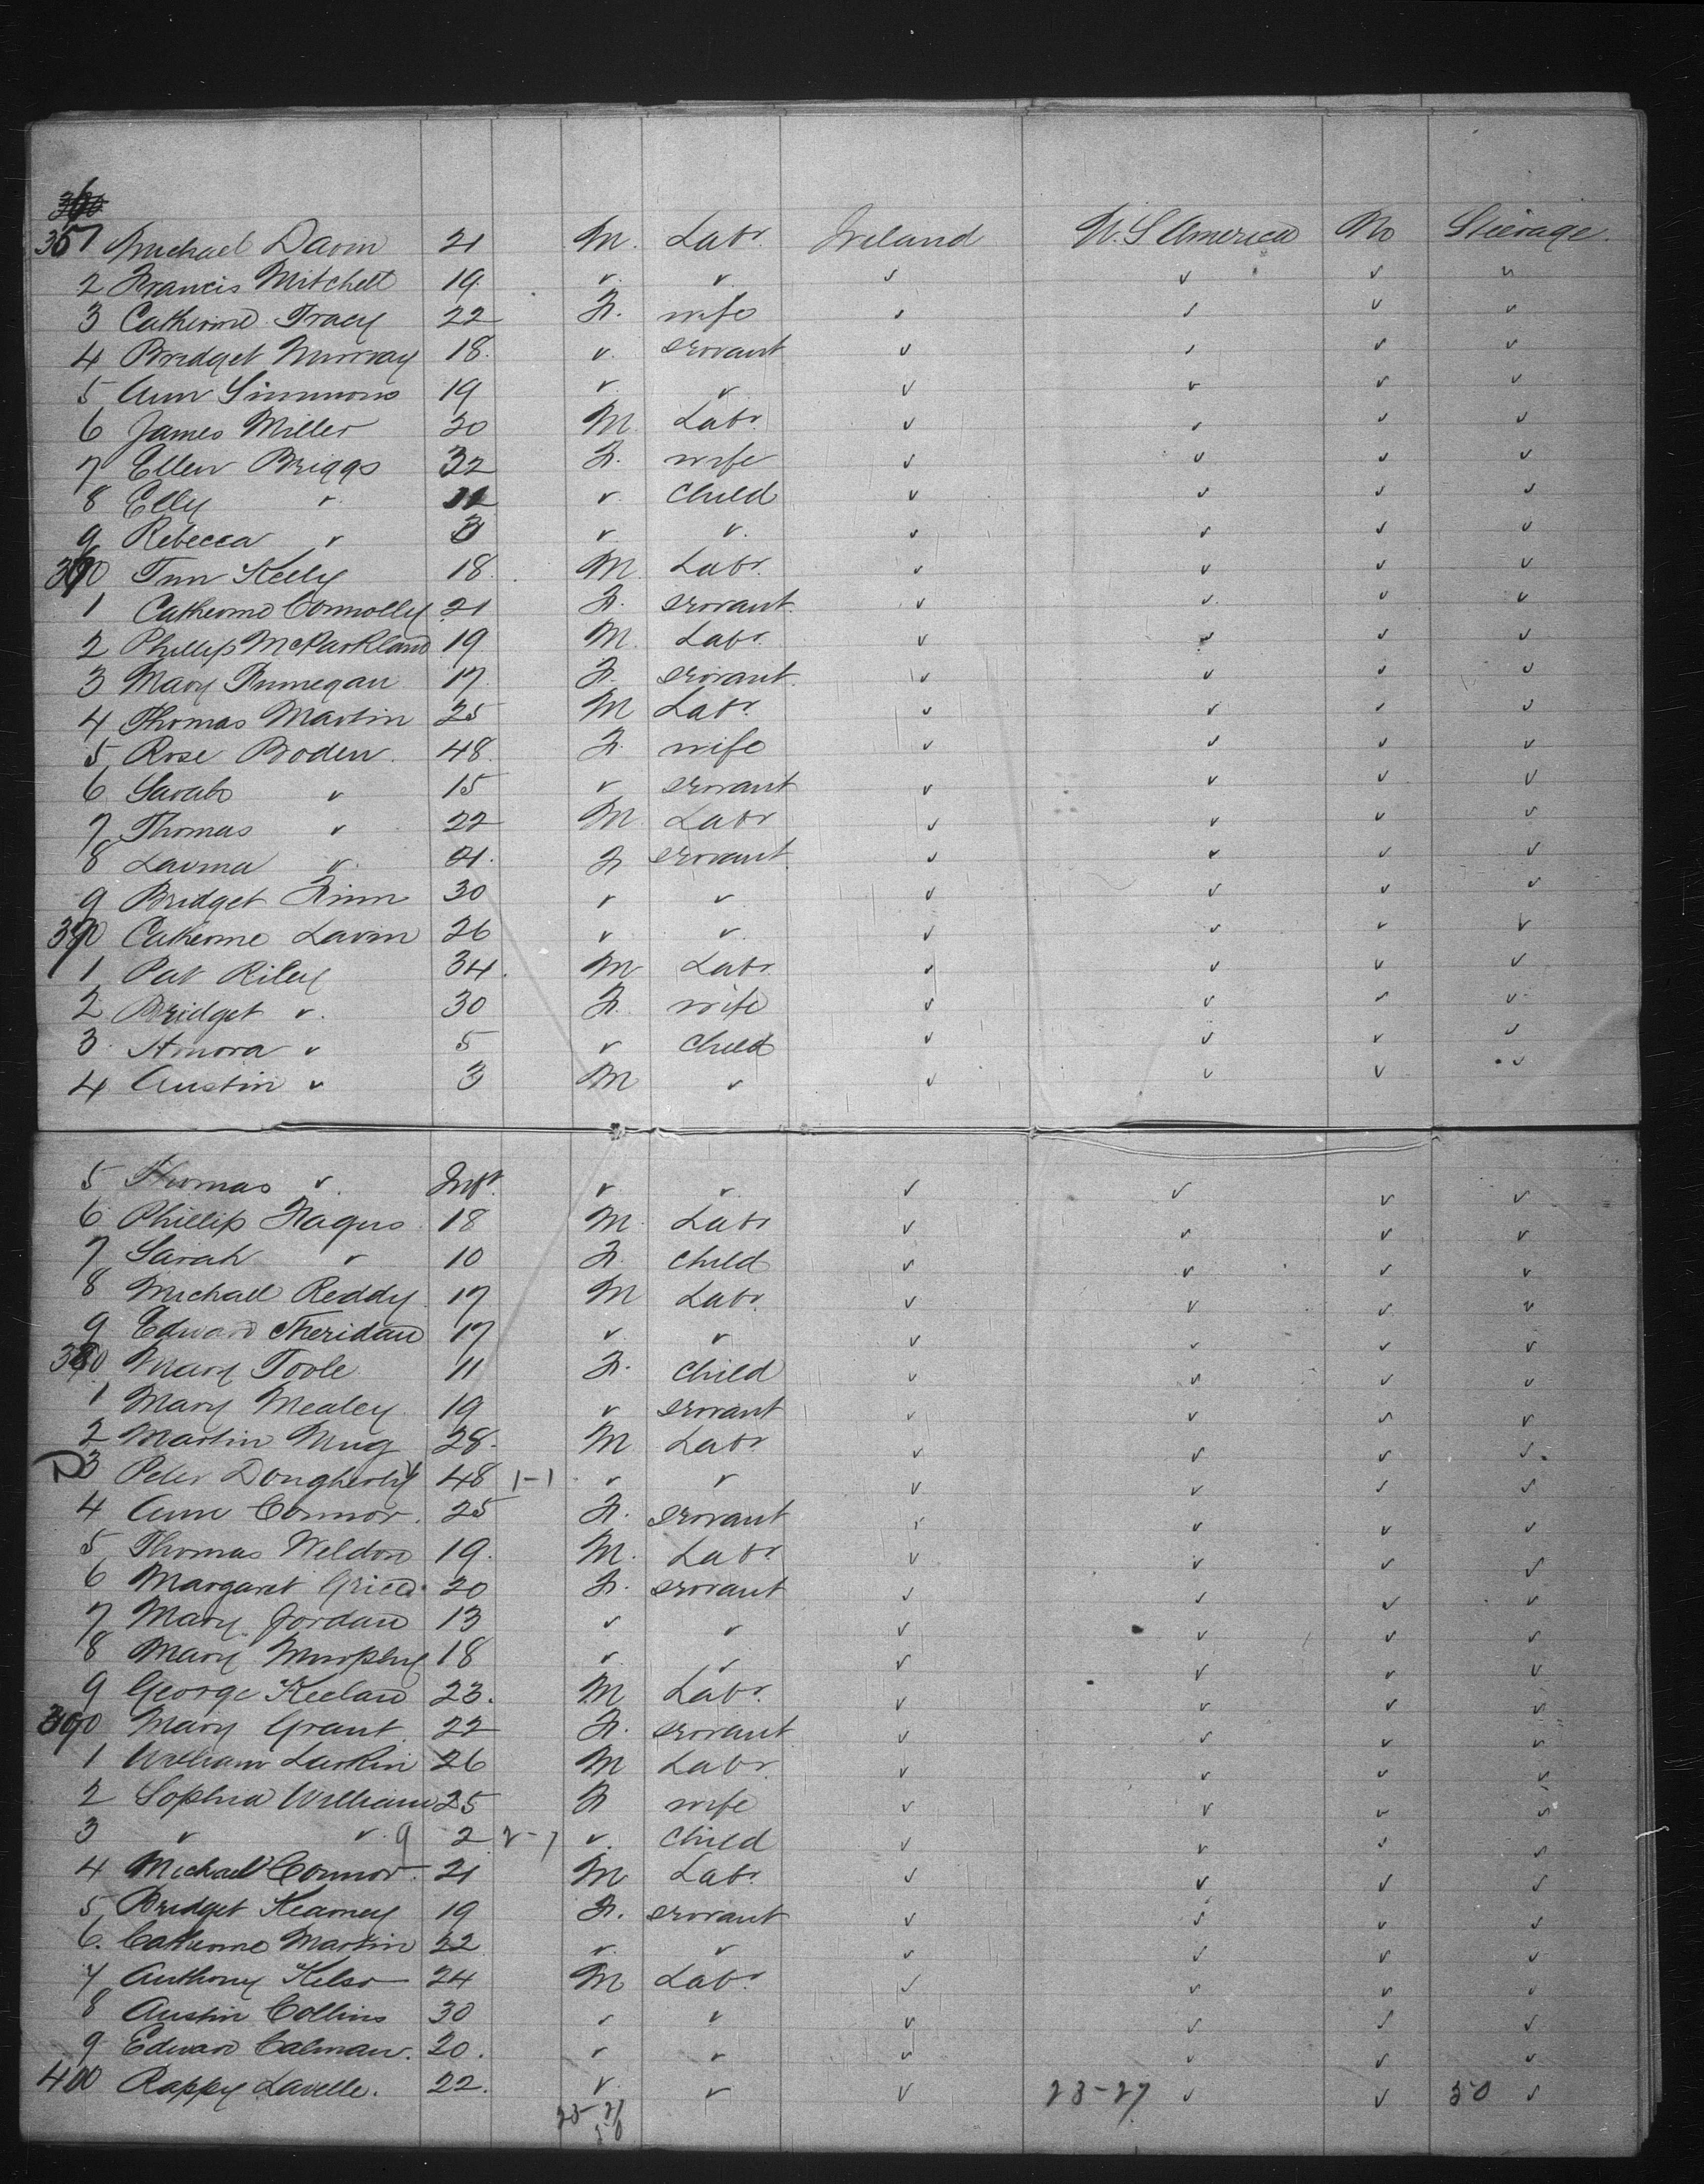 351 Michael Davin 21 M. Labr. Ireland U. S America No Steerage.
2 Francis Mitchell 19. v. v. v v v v
3 Catherine Tracy 22 F. wife v v v v
4 Bridget Murray 18. v. servant v v v v
5 Ann Simmons 19 v. v. v v v v
6 James Miller 30 M. Labr. v v v v
7 Ellen Briggs 32 F. wife v v v v
8 Elly v. 11 v. child v v v v
9 Rebecca v 3 v. v. v v v v
360 Tim Kelly 18. M. Labr. v v v v
1 Catherine Connolly 21 F. servant. v v v v
2 Phillip McParkland 19 M. Labr. v v v v
3 Mary Finnegan 17. F. servant. v v v v
4 Thomas Martin 25 M Labr. v v v v
5 Rose Boden. 48. F. wife v v v v
6 Sarah v 15 v servant v v v v
7 Thomas v 22 M Labr v v v v
8 v. 21. F servant v v v v
9 Bridget Finn 30 v v v v v v
370 Catherine Lavin 26 v v. v v v v
1 Pat Riley 34. M Labr. v v v v
2 Bridget v. 30 F. wife v v v v
3 Honora v 5 v child v v v v
4 Austin v 3 M v v v v v
5 Thomas v. Inft. v v. v v v v
6 Phillip Fagus 18 M. Labr v v v v
7 Sarah v 10 F. child v v v v
8 Michael Reddy 17 M Labr. v v v v
9 Edward Sheridan 17 v. v v v v v
380 Mary Toole 11 F. child v v v v
1 Mary Mealey 19 v servant v v v v
2 Martin 28. M Labr v v v v
D 3 Peter Dougherty 48 1-1 v v v v v v
4 Ann Connor. 25 F. servant v v v v
5 Thomas Weldon 19. M. Labr. v v v v
6 Margaret 20 F. servant v v v v
7 Mary Jordan 13 v v v v v v
8 Mary Murphy 18 v. v v v v v
9 George Keelan 23. M Labr. v v v v
390 Mary Grant 22 F. servant v v v v
1 William Larkin 26 M Labr v v v v
2 Sophia William 25 F wife v v v v
3 v v. 9 2 v. child v v v v
4 Michael Connor 21 M Labr. v v v v
5 Bridget Kearney 19 F. servant v v v v
6. Catherine Martin 22 v. v v v v v
7 Anthony Kelso 24 M Labr. v v v v
8 Austin Collins 30 v v v v v v
9 Edward Calman. 20. v v v v v v
400 Rappy Lavelle. 22. v. v v 23-27 v v 50 v
23-27
50